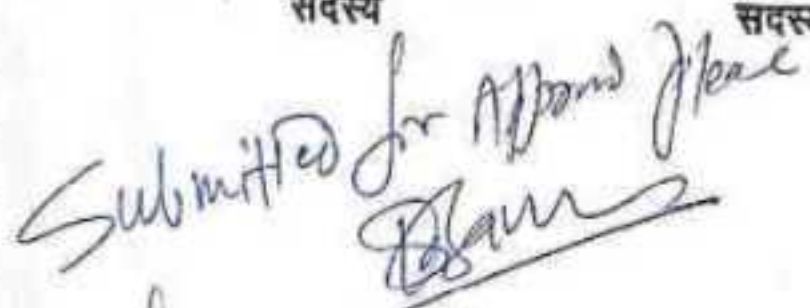 सदस्य सदस्य
Submitted for Approval Please